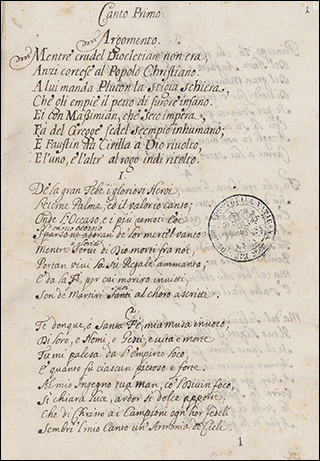 Canto Primo
1
Argomento.
Mentre crudel Diocletian non era,
Anzi cortese al Popolo Christiano.
A lui manda Pluton la Stigia schiera,
Che gli empiè il petto di furore insano.
Ei con Massimian, che seco impera,
Fà del Gregge fedel scempio inhumano;
E Faustin da Cirilla a Dio rivolto,
E l'uno, e l'altr' al rogo indi ritolto.
I
De la gran Fede i gloriosi Heroi,
Palme, ed il valor io canto;
Onde l'Occaso, e i più
di lor mertal vanto
Mentre Servi di Dio morti frà noi,
Portan Regale ammanto,
E dà la Fè, per cui moriro invitti,
Son de Martiri Santi al choro ascritti.
Te dunque, o Santa Fè, mia musa invoco;
Di loro, e Nomi, e Gesti, e vita e morte
Tu mi palesa da l'Empireo loco,
E quanto fù ciascun pietoso e forte.
Al mio Ingegno tua man, co'l Divin foco,
Sì chiara luce, ardor sì dolce apporte,
Che di Christo ai Campioni ogn' hor fedeli
Sembri l'mio Canto un' Armonia de Cieli.
1